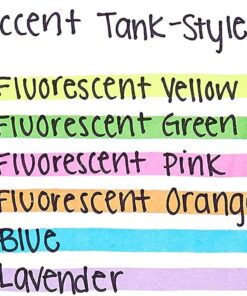 ccent Tank-Style
Fluorescent Yellow
Fluorescent Green
Fluorescent Pink
Fluorescent Orange
Blue
Lavender